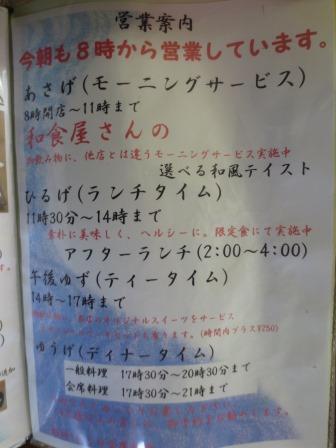 営業案内
今朝も8時から営業しています。
あさげ(モーニングサービス)
8時開店～11時まで
和食屋さんの
お飲み物に、他店とは違うモーニングサービス実施中
選べる和風テイスト
ひるげ(ランチタイム)
11時30分～14時まで
素朴に美味しく、ヘルシーに。限定食にて実施中
アフターランチ(2:00～4:00)
午後ゆず(ティータイム)
14時～17時まで
オリジナルスイーツをサービス
(時間内プラス¥250)
ゆうげ(ディナータイム)
一般料理 17時30分～20時30分まで
会席料理 17時30分～21時まで